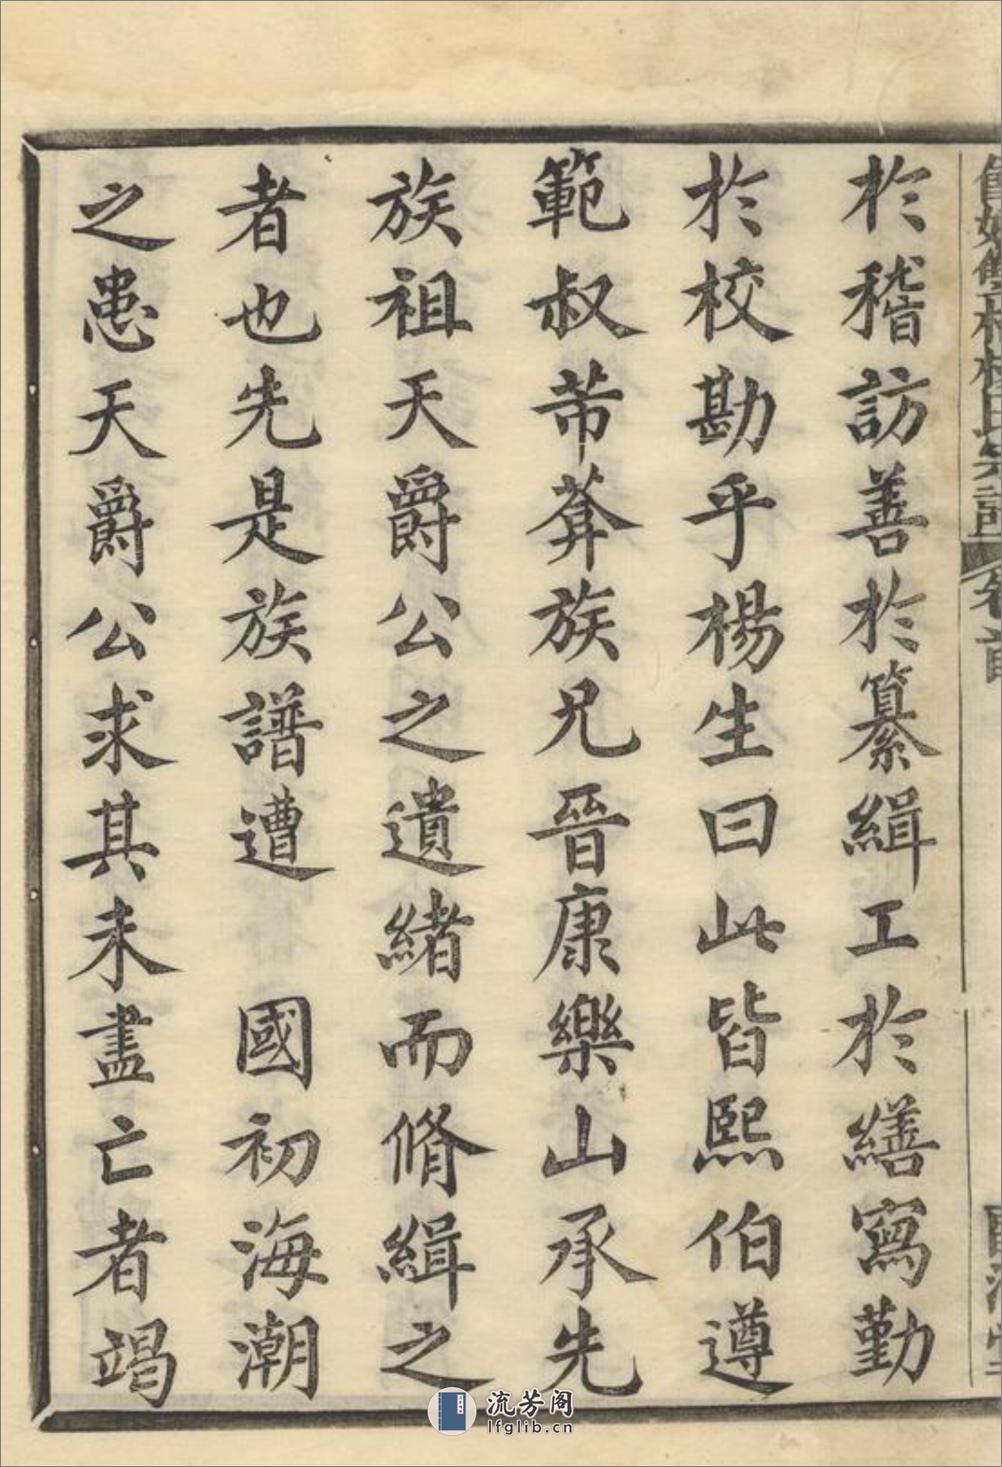 於稽訪善於纂緝工於繕寫勤
於校勘乎楊生曰此皆熙伯遵
範叔芾莽族兄晉康樂山承先
族祖天爵公之遺緒而脩緝之
者也先是族譜遭 國初海潮
之患天爵公求其未盡亡者竭
流芳阁
lfglib.cn